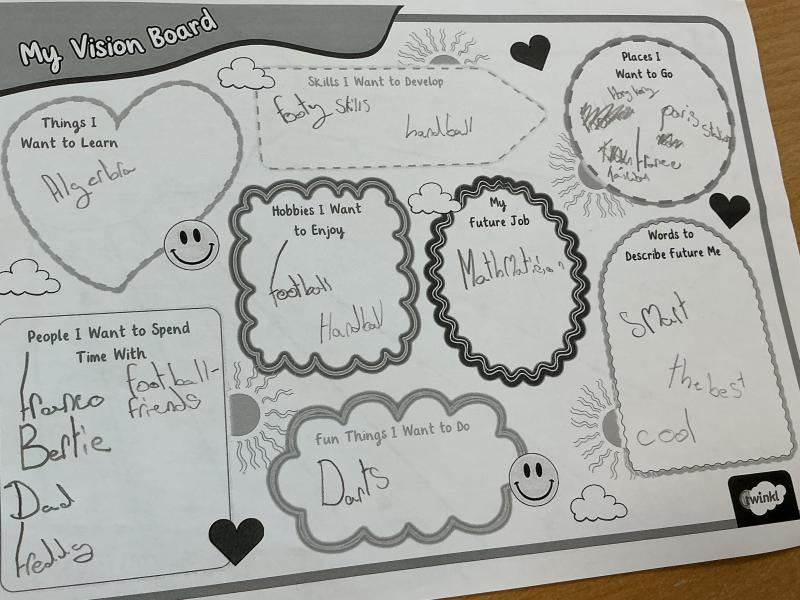 My Vision Board
Things I
Want to Learn
Algerbra
Skills I Want to Develop
footy skills
handball
Places I
Want to Go
Hong kong
paris
france
Hobbies I Want
to Enjoy
football
Handball
My
Future Job
MathMatision
Words to
Describe Future Me
smart
the best
cool
People I Want to Spend
Time With
franco football-
friends
Bertie
Dad
freddy
Fun Things I Want to Do
Darts
twinkl